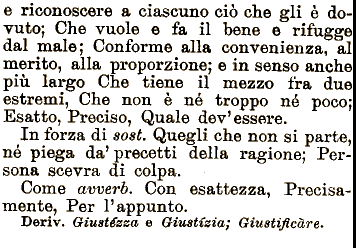 e riconoscere a ciascuno ciò che gli è do-
vuto; Che vuole e fa il bene e rifugge
dal male; Conforme alla convenienza, al
merito, alla proporzione; e in senso anche
più largo Che tiene il mezzo fra due
estremi, Che non è né troppo né poco;
Esatto, Preciso, Quale dev'essere.
In forza di sost. Quegli che non si parte,
né piega da' precetti della ragione; Per-
sona scevra di colpa.
Come avverb. Con esattezza, Precisa-
mente, Per l'appunto.
Deriv. Giustézza e Giustízia; Giustificàre.